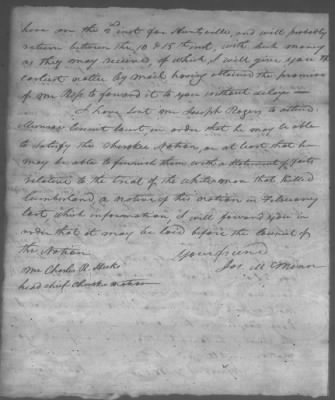 here on the 2 inst for Huntsville, and will probably
return between the 10 & 15th inst, with such money
as they may received, of which I will give you the
earliest notice by mail having obtained the promise
of Mr Ross to forward it to you without delay —
I have sent Mr Joseph Rogers to attend
Circuit Court in order that he may be able
to satisfy the Cherokee Nation, or at least that he
may be able to furnish them with a Statement of facts
relative to the trial of the white man that killed
Cumberland, a native of this nation in February
last, which information, I will forward you in
order that it may be laid before the Council of
the Nation
Your friend
Jos. McMinn
Mr Charles R. Hicks
head chief Cherokee nation